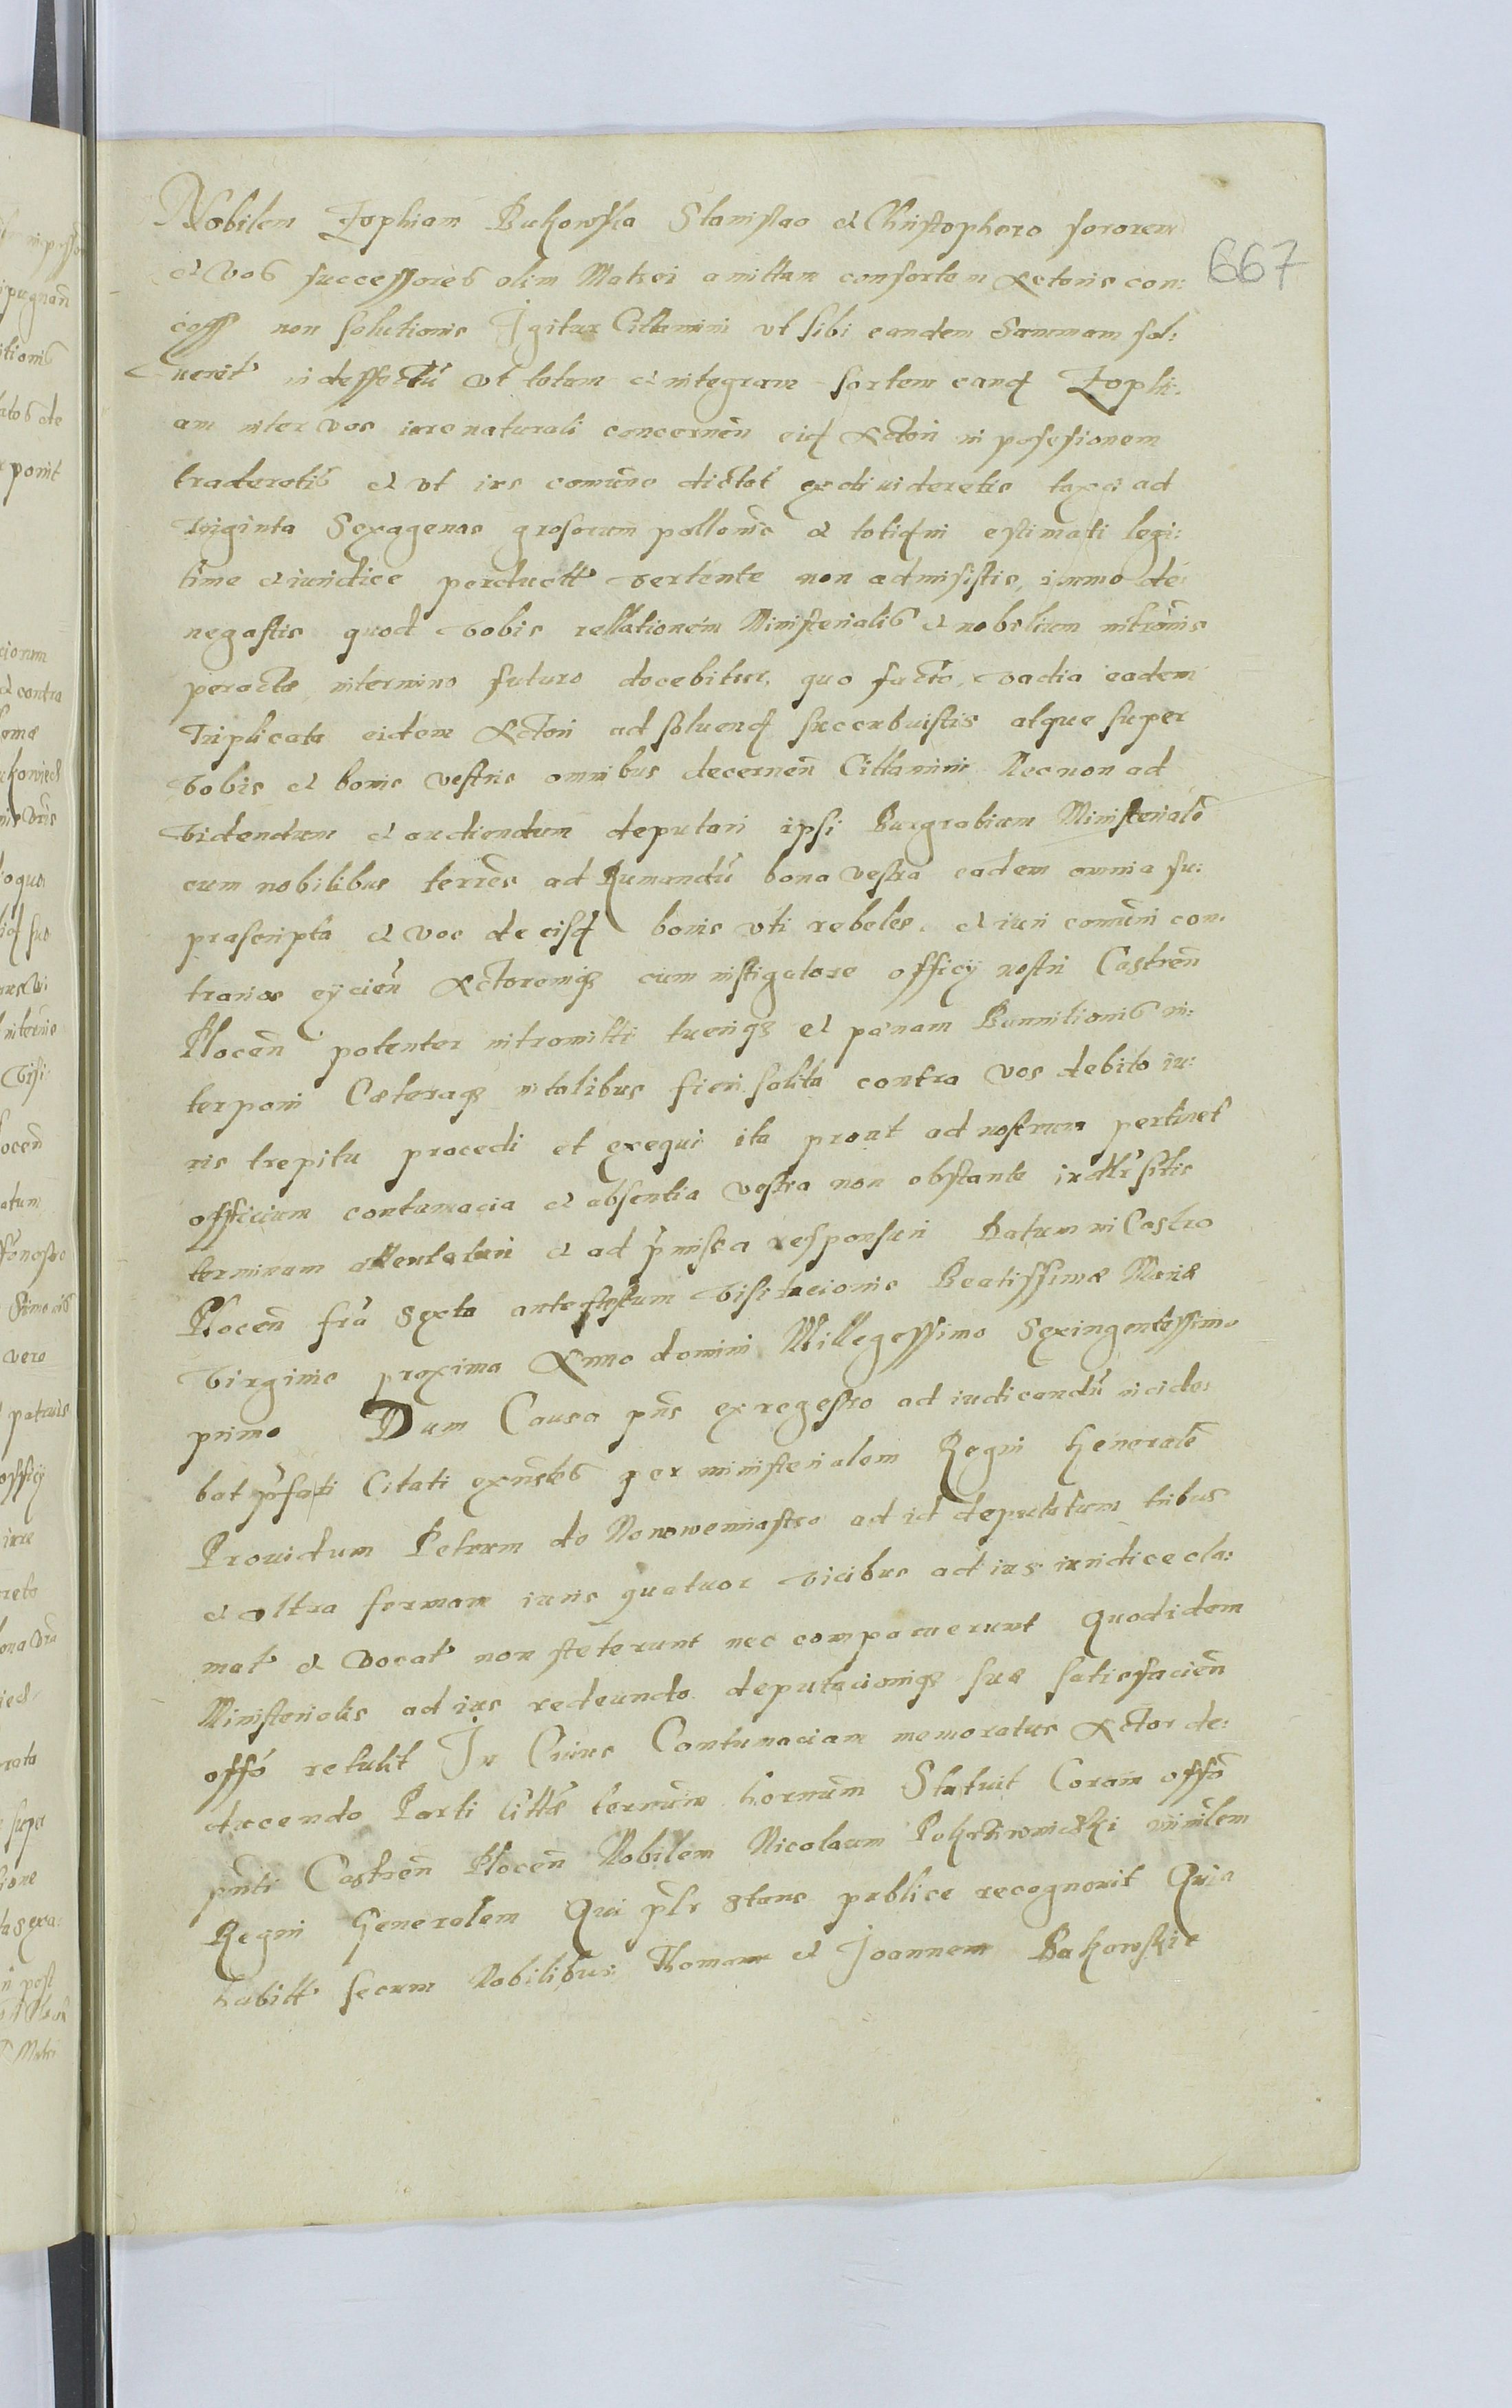 667
Nobilem Zophiam Bukowska Stanislao et Christophero sororem
et vos successores olim Matzei amittam consortem Actoris con:
cess non solutionis Igitur Cittamini ut sibi eandem Summam sol:
uerit in deffectu ut totam et integram sortem eand Zophi:
am inter vos iure naturali concernen eid Actori in posesionem
traderetis et ut ius comune dictat exdiuideretis taxa ad
Triginta Sexagenas grosorum pollonic et totidni estimati legi:
time et iuridice perductt vertente non admisistis, immo de:
negastis quod vobis rellationem Ministerialis et nobilium intromis
peractæ in termino futuro docebitur, quo facto, vadia eadem
Triplicata eidem Actori ad soluend succubuistis atque super
vobis et bonis vestris omnibus decernen Cittamini Necnon ad
videndum et audiendum deputari ipsi Burgrabium Ministeriale
cum nobilibus terres ad Rumandu bona vestra eadem omnia su:
prascripta et vos de eisd bonis uti rebeles, et iuri comuni con:
trarios eycien Actoremq cum instigatore officy nostri Castren
Plocen potenter intromitti tueriq et pænam Bannitionis in:
terponi Cæteraq in talibus fieri solita contra vos debito iu:
ris trepitu procedi et exequi ita prout ad nostrum pertinet
officium contumacia et absentia vestra non obstante iudlr sitis
terminum attentaturi et ad pmissa responsuri Datum in Castro
Plocen fria Sexta ante festum Visitacionis Beatissimæ Mariæ
Virginis proxima Anno domini Millegessimo Sexingentessimo
primo Dum Causa pns ex regestro ad iudicandu incide:
bat prfati Citati exnstes per ministerialem Regni Generale
Prouidum Petrum de Nowowemiastro ad id deputatum tribus
et ultra formam iuris quatuor vicibus ad ius iuridice cla:
mat et vocat non steterunt nec comparuerunt Quod idem
Ministerialis ad ius redeundo deputacioniq suæ satisfacien
offo retulit In Cuius Contumaciam memoratus Actor de:
ducendo Parti Cittæ termum hornum Statuit Coram offo
pnti Castren Plocen Nobilem Nicolaum minilem
Regni Generalem Qui plr stans publice recognouit Quia
habitt secum Nobilibus Thomam et Joannem Bukowskie